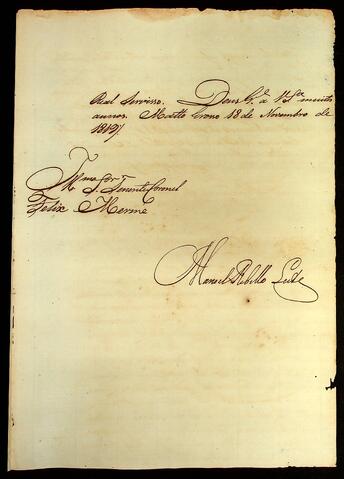 Real Servisso. Deus G.e a V.S.a muitos
annos. Matto Groso 18 de Novembro de
1819.
Ill.mo S.or Tenente Coronel
Felix Merme
Manoel Rebello Leite